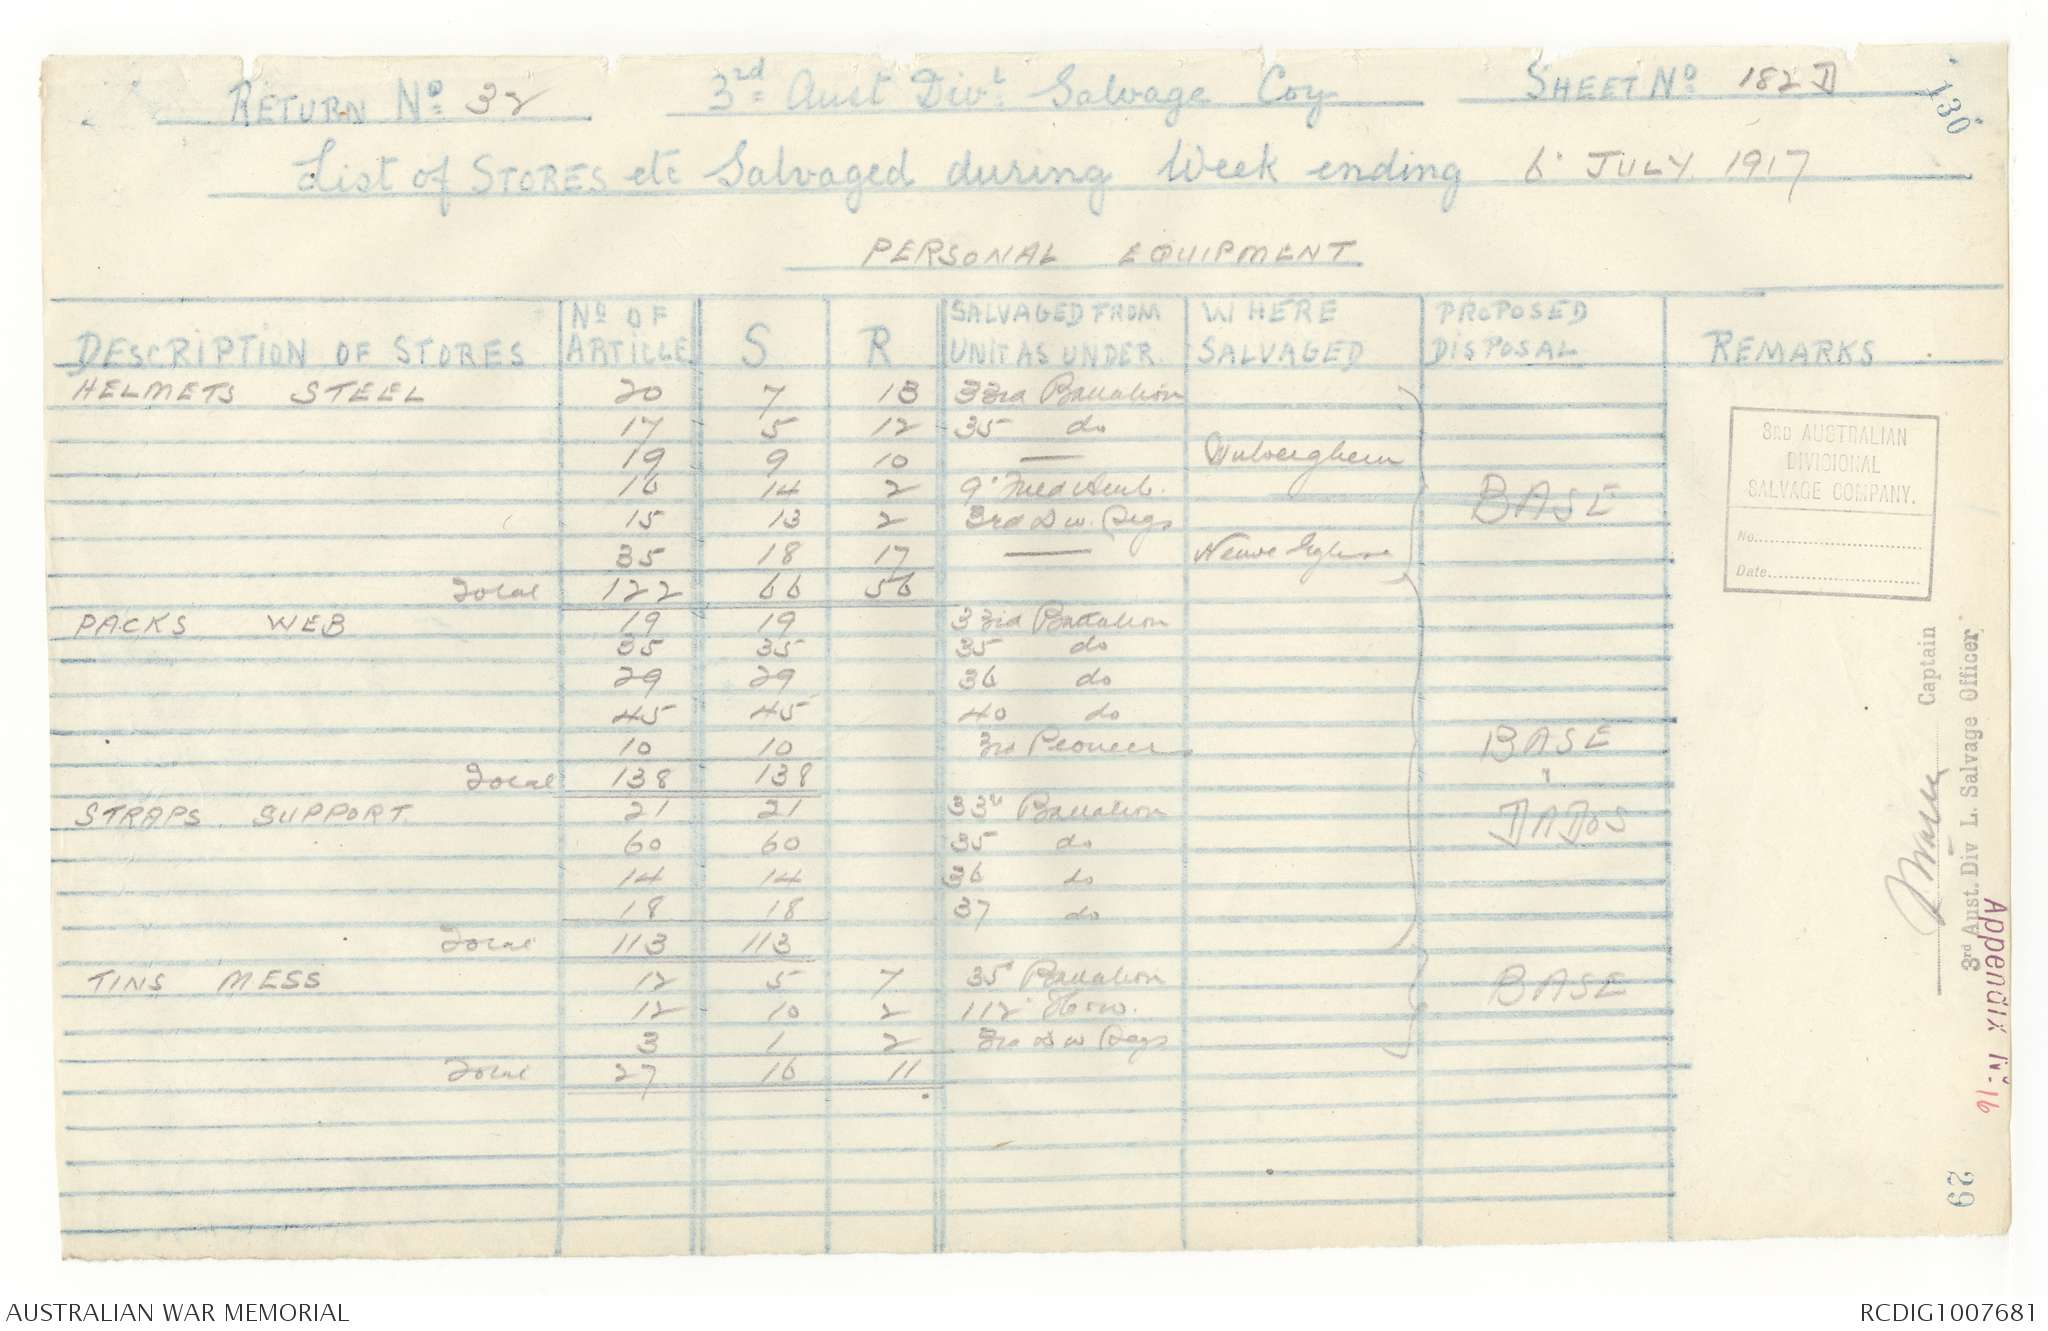 RETURN Nº 32 3rd Aust Divl. Salvage Coy SHEET Nº 182 D
130
List of STORES etc Salvaged during Week ending 6. JULY. 1917
PERSONAL EQUIPMENT
DESCRIPTION OF STORES Nº OF ARTICLE S R SALVAGED FROM UNIT AS UNDER. WHERE SALVAGED PROPOSED DISPOSAL REMARKS
HELMETS STEEL 20 7 13 33rd Battalion
17 5 12 35 do
19 9 10 — Wulverghem
16 14 2 9.
15 13 2 3rd Dw.
35 18 17 — Neuve Eglise
BASE
Total 122 66 56
PACKS WEB 19 19 33rd Battalion
35 35 35 do
29 29 36 do
45 45 40 do
10 10 3rd Pioneers
BASE
"
DADOS
Total 138 138
STRAPS SUPPORT 21 21 33rd Battalion
60 60 35 do
14 14 36 do
18 18 37 do
Total 113 113
TINS MESS 12 5 7 35 Battalion BASE
12 10 2 112 How.
3 1 2 3rd
Total 27 16 11
3RD AUSTRALIAN
DIVISIONAL
SALVAGE COMPANY.
No.
Date
Captain
3rd Aust. Div L. Salvage Officer
Appendix IV-16
62
AUSTRALIAN WAR MEMORIAL RCDIG1007681